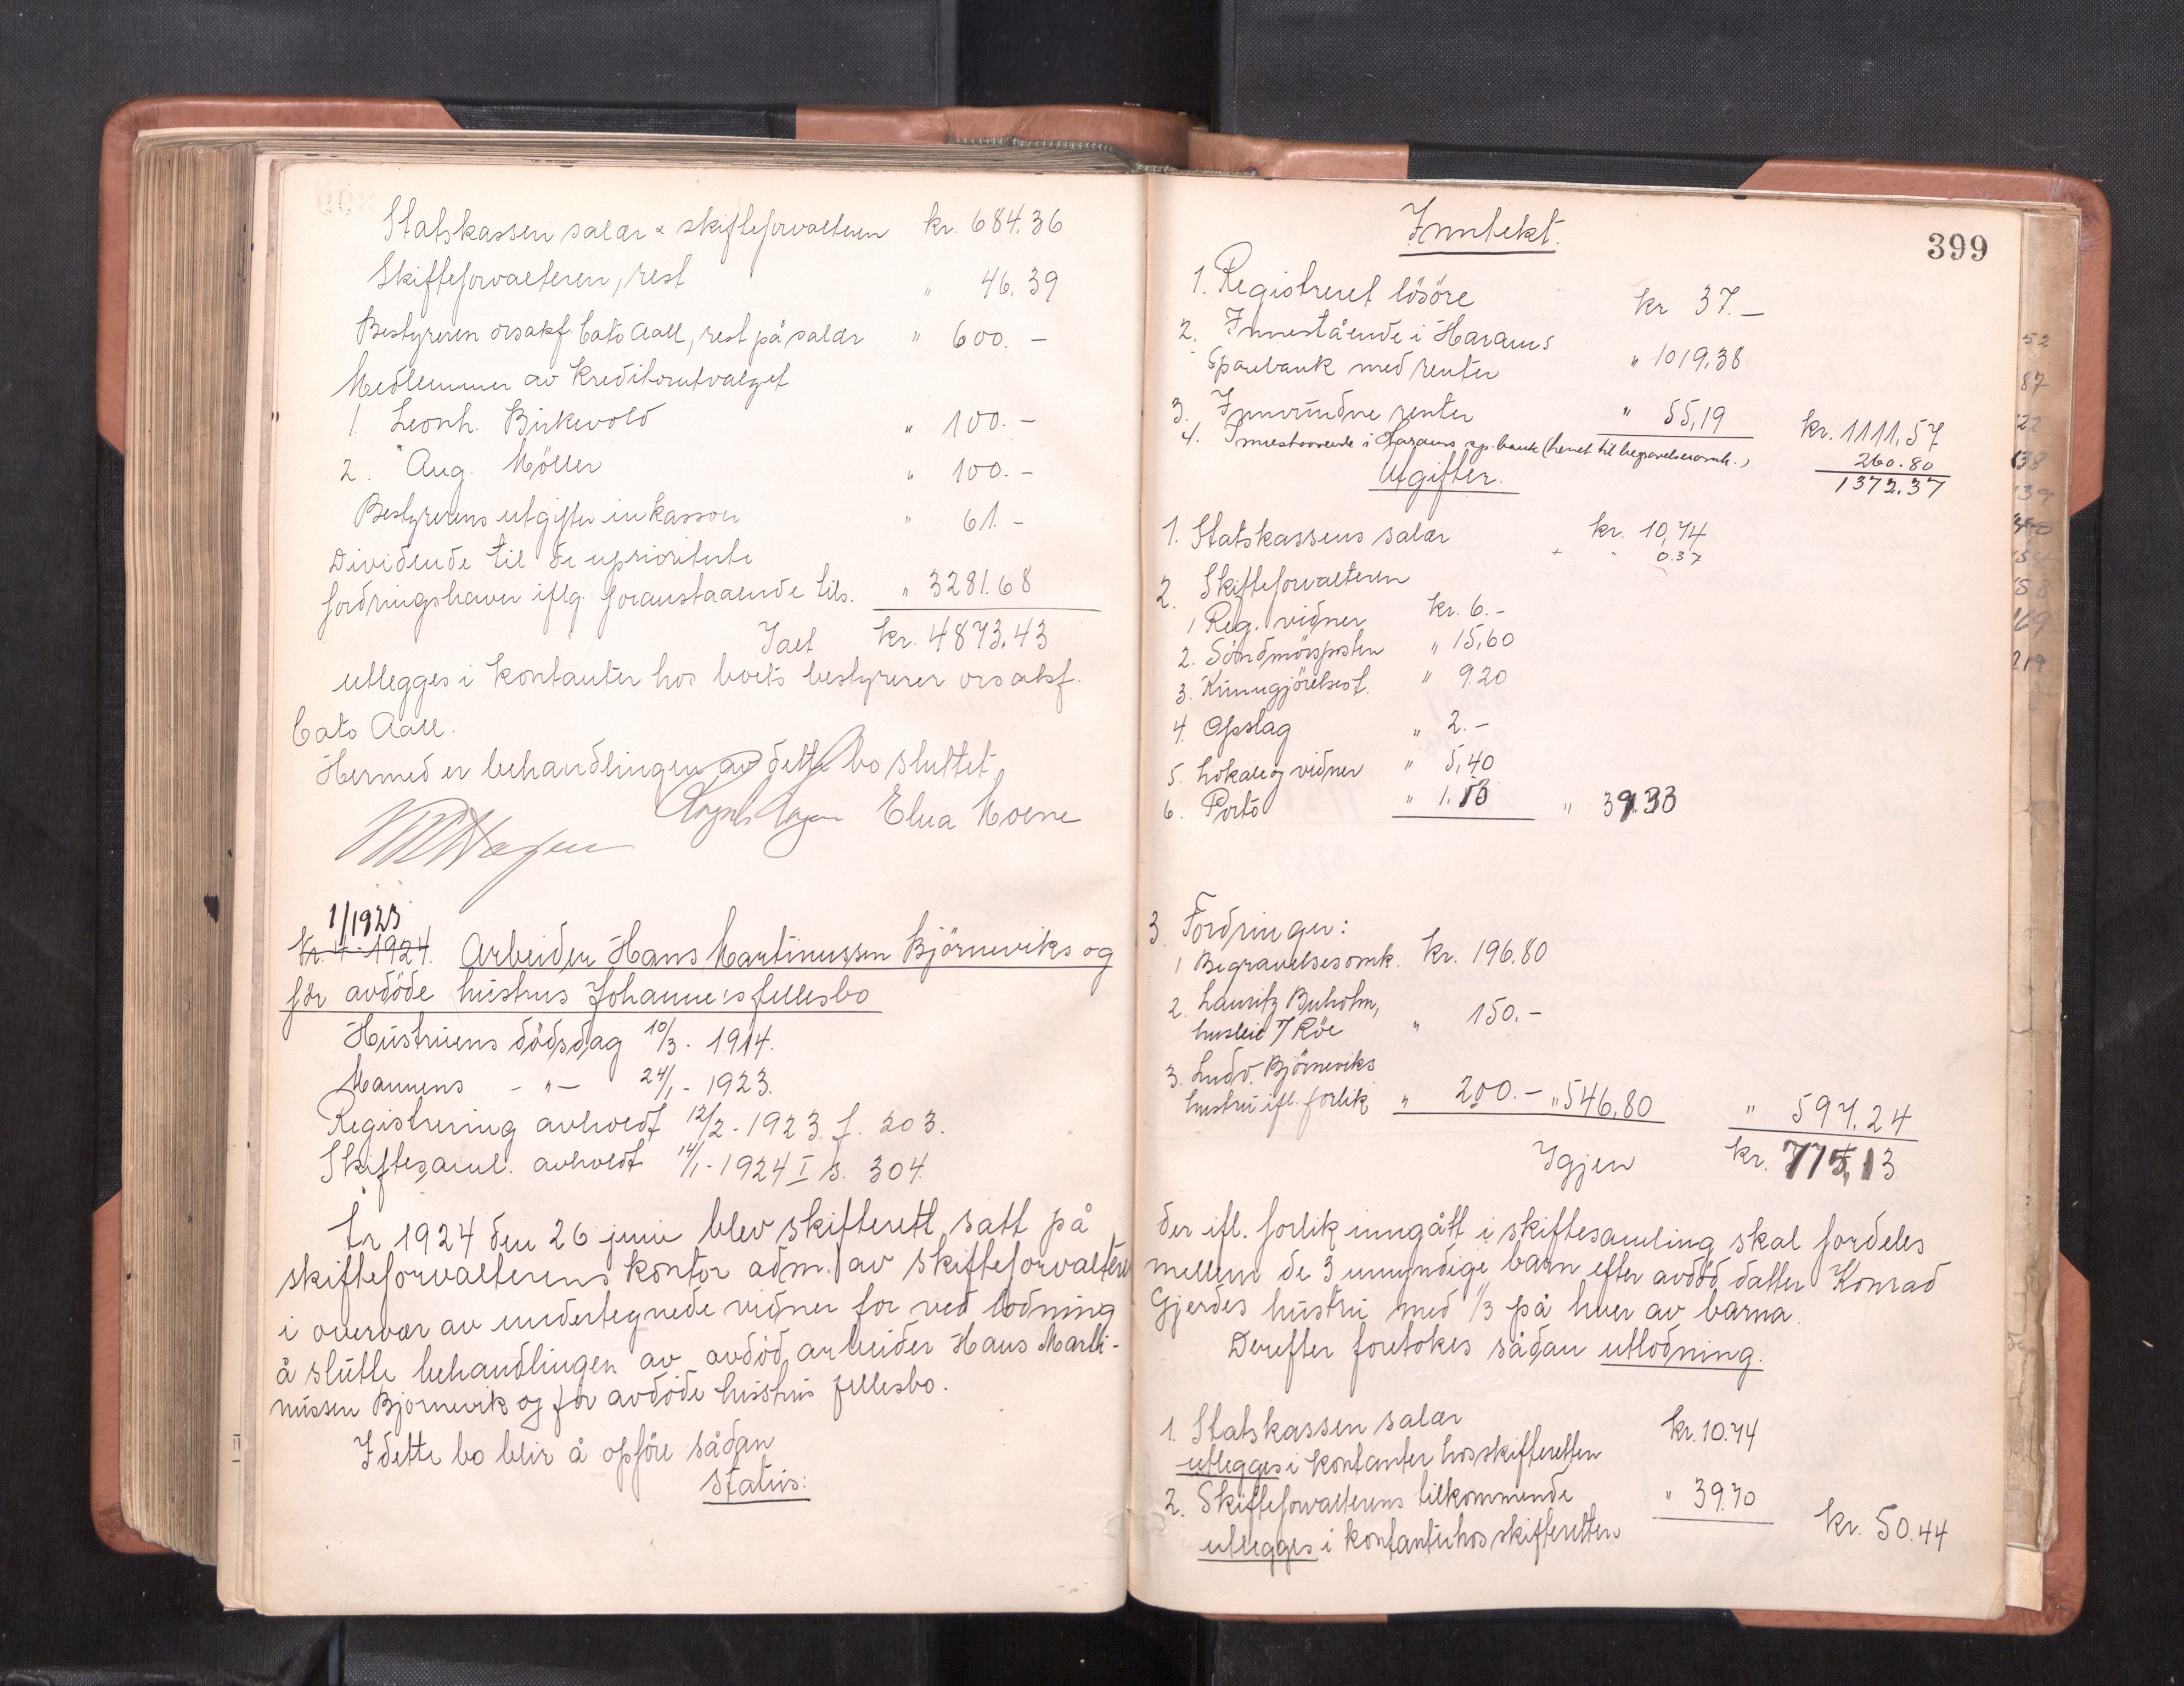 Statskassen salær & skifteforvalteren kr. 684.36
Skifteforvalteren, rest " 46.39
Bestyreren orsakf. Cato Aall, rest på salær " 600.-
Medlemmer av Kreditorutvalget
1. Leonh. Birkevold " 100.-
2. Aug. Möller " 100.-
Bestyrerens utgifter inkasson " 61.-
Dividende til de uprioriterte
fordringshaver iflg. foranstaaende tils. " 3281.68
Ialt kr. 4873.43
utlegges i kontanter hos boets bestyrer orsakf.
Cato Aall.
Hermed er behandlingen av dette bo sluttet.
Elna Moene
1/1923
Nr. 4 - 1924. Arbeider Hans Martinussen Björneviks og
för avdöde hustrus Johanne's fellesbo
Hustruens dödsdag 10/3 - 1914.
Mannens - " - 24/1 - 1923.
Registrering avholdt 12/2 - 1923 f. 203.
Skiftesaml. avholdt 14/1 - 1924 I s. 304.
År 1924 den 26 juni blev skifterett satt på
skifteforvalterens kontor adm. av skifteforvalteren
i overvær av undertegnede vidner for ved lodning
å slutte behandlingen av avdöd arbeider Hans Marti-
nussen Bjornevik og för avdöde hustrus fellesbo.
I dette bo blir å opföre sådan
Status:
399
Inntekt.
1. Registreret lösöre kr 37.-
2. Innestående i Harams
Sparebank med renter " 1019,38
3. Innvundne renter " 55,19 kr. 1111,57
4. Innestaaende i Harams sp.bank (hevet til begravelsesomk.) 260.80
1372.37
Utgifter.
1. Statskassens salær kr. 10,74
+ " 0.37
2. Skifteforvalteren
1 Reg. vidner kr. 6.-
2. Söndmörsposten " 15,60
3. Kunngjörelsest. " 9.20
4. Opslag " 2.-
5. Lokale og vidner " 5,40
6. Porto " 1.13 " 39.33
3. Fordringer:
1 Begravelsesomk. kr. 196.80
2. Lauritz Buholm,
husleie 7 Röe " 150.-
3. Ludv. Björneviks
hustru ifl. forlik " 200.- " 546,80 " 597.24
Igjen kr. 775,13
der ifl. forlik inngått i skiftesamling skal fordeles
mellem de 3 umyndige barn efter avdöd datter Konrad
Gjerdes hustru med 1/3 på hver av barna.
Derefter foretokes sådan utlodning.
1. Statskassen salær kr. 10.74
utlegges i kontanter hos skifteretten
2. Skifteforvalterens tilkommende " 39.70
utlegges i kontanter hos skifteretten kr. 50.44
52
87
22
138
139
169
219